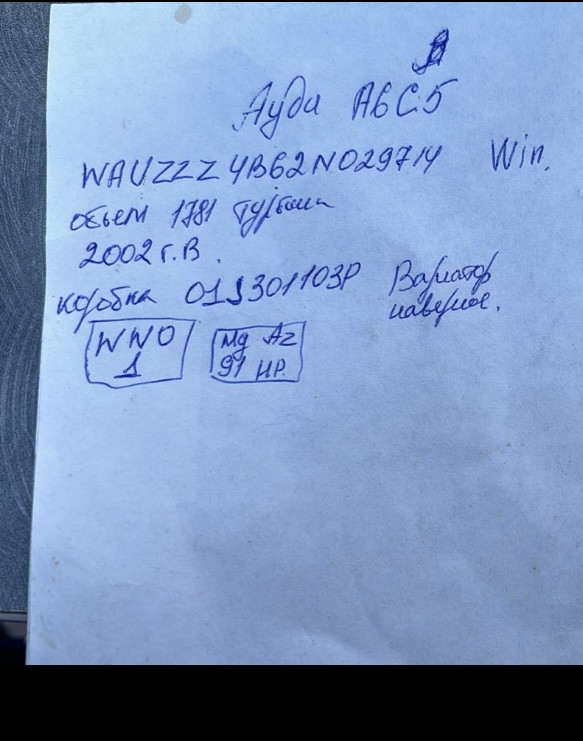 Ауди А6С5
WAUZZZ4B62N029714 Win.
объем 1781 турбина
2002 г.в.
коробка 01J301103P Вариатор
наверное.
WWO
1
Mg Az
91 HP.